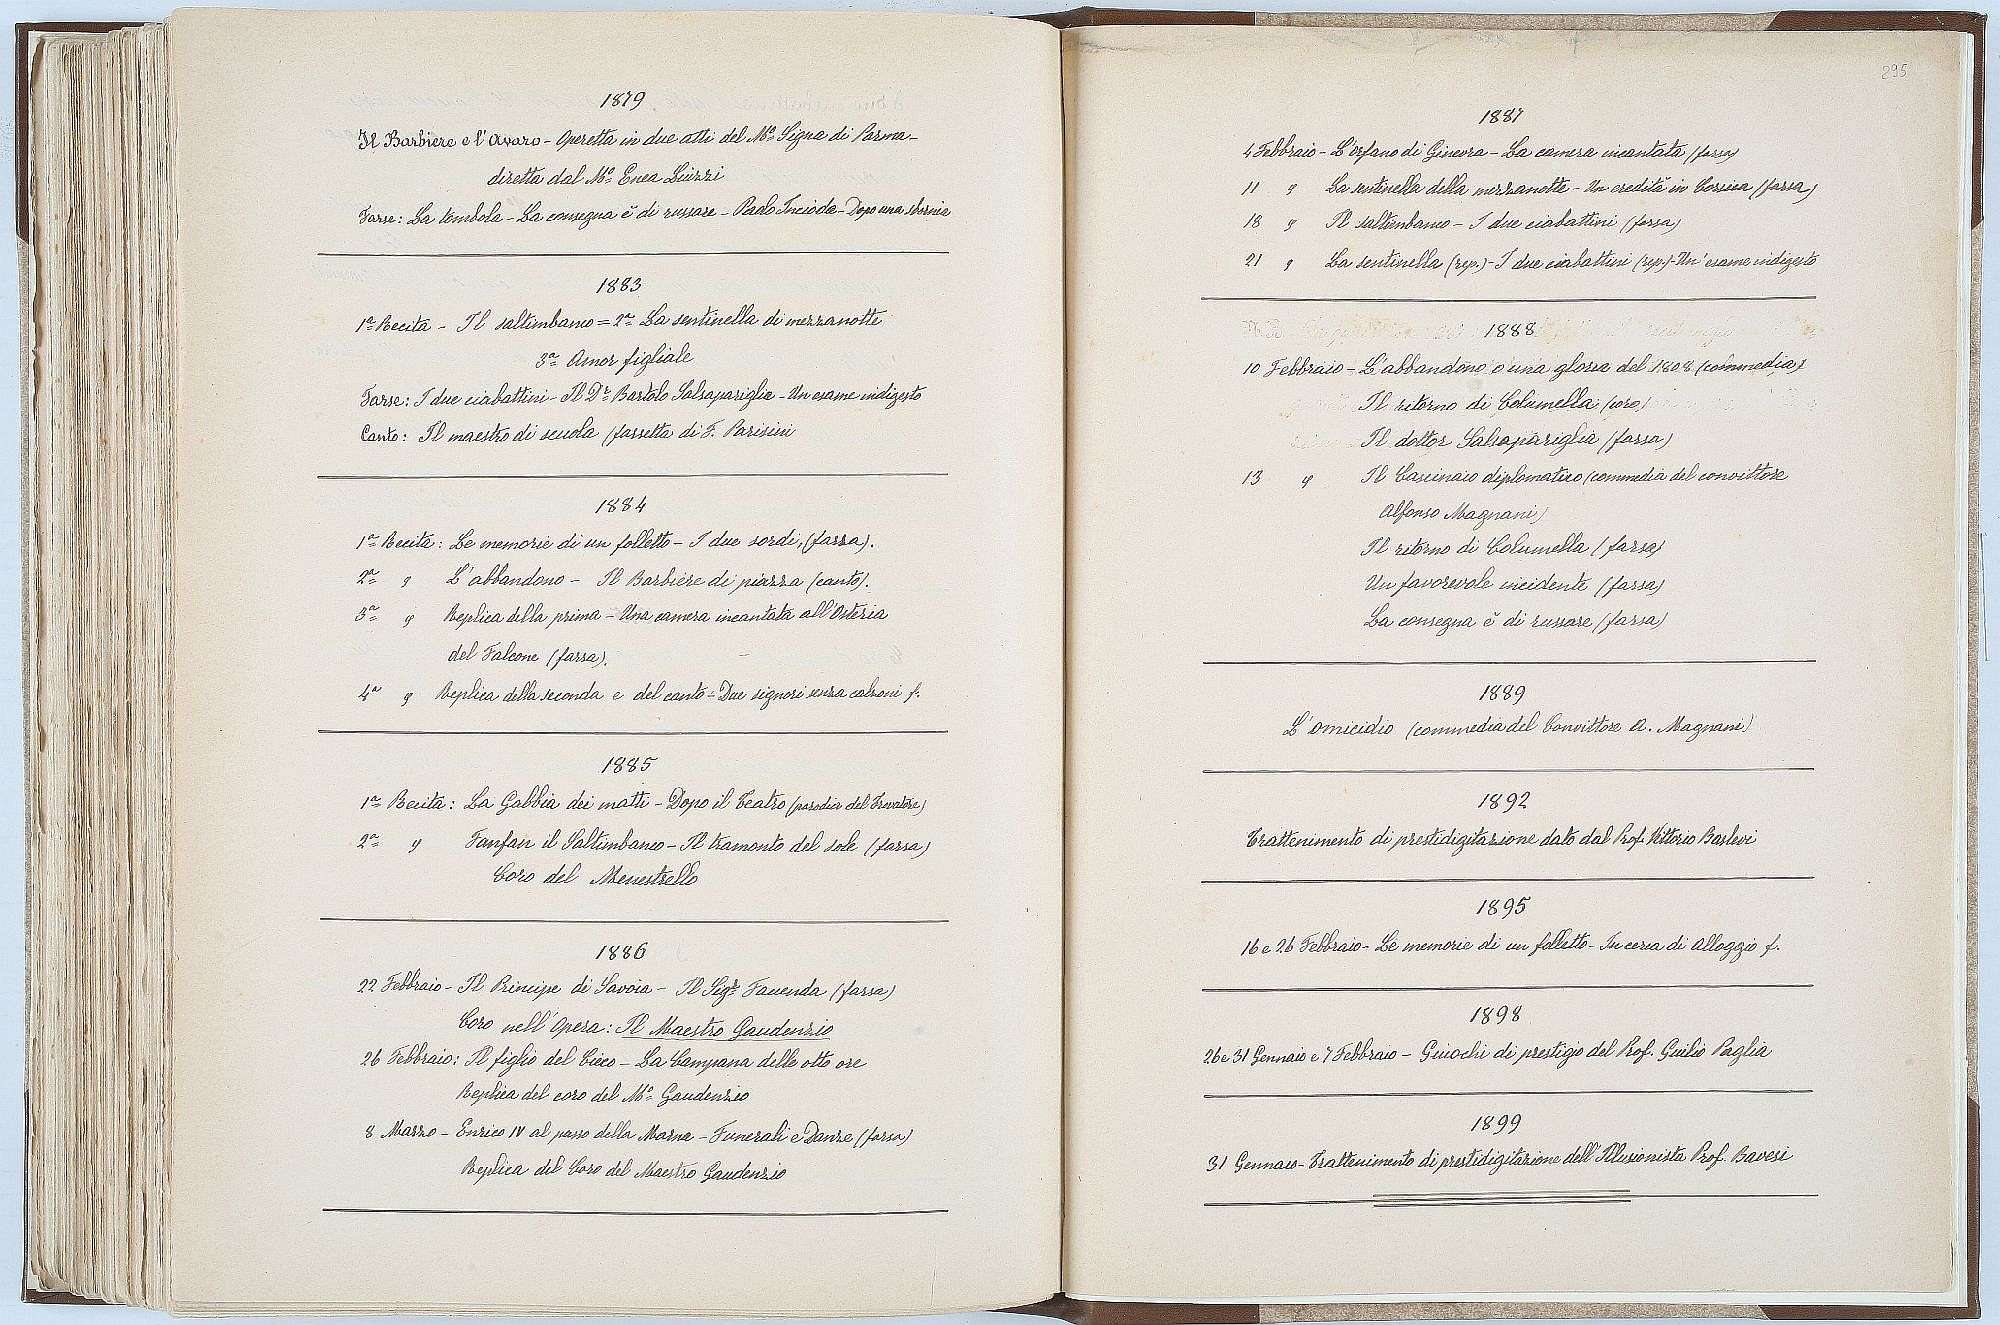 1879
Il Barbiere e l'Avaro - Operetta in due atti del Mo Signa di Parma -
diretta dal Mo Enea Liuzzi
Farse: La tombola - La consegna è di russare - Paolo Incioda - Dopo una sbornia
1883
1a Recita - Il saltimbanco = 2a La sentinella di mezzanotte
3a Amor figliale
Farse: I due ciabattini - Il Dr Bartolo Salsapariglia - Un esame indigesto
Canto: Il maestro di scuola (farsetta di F. Parisini
1884
1a Recita: Le memorie di un folletto - I due sordi, (farsa).
2a " L'abbandono - Il Barbiere di piazza (canto).
3a " Replica della prima - Una camera incantata all'Osteria
del Falcone (farsa).
4a " Replica della seconda e del canto = Due signori senza calzoni f.
1885
1a Recita: La Gabbia dei matti - Dopo il Teatro (parodia del Trovatore)
2a " Fanfan il Saltimbanco - Il tramonto del sole (farsa)
Coro del Menestrello
1886
22 Febbraio - Il Principe di Savoia - Il Sigr Faccenda (farsa)
Coro nell'Opera: Il Maestro Gaudenzio
26 Febbraio: Il figlio del Cieco - La Campana delle otto ore
Replica del coro del Mo Gaudenzio
8 Marzo - Enrico IV al passo della Marna - Funerali e Danze (farsa)
Replica del Coro del Maestro Gaudenzio
295
1887
4 Febbraio - L'orfano di Ginevra - La camera incantata (farsa)
11 " La sentinella della mezzanotte - Un eredità in Corsica (farsa)
18 " Il saltimbanco - I due ciabattini (farsa)
21 " La sentinella (rep.) - I due ciabattini (rep.) - Un'esame indigesto
1888
10 Febbraio - L'abbandono o una gloria del 1808 (commedia)
Il ritorno di Columella (coro)
Il dottor Salsapariglia (farsa)
13 " Il Cascinaio diplomatico (commedia del convittore
Alfonso Magnani)
Il ritorno di Columella (farsa)
Un favorevole incidente (farsa)
La consegna è di russare (farsa)
1889
L'omicidio (commedia del Convittore A. Magnani)
1892
Trattenimento di prestidigitazione dato dal Prof. Vittorio Barlevi
1895
16 e 26 Febbraio - Le memorie di un folletto - In cerca di alloggio f.
1898
26 e 31 Gennaio e 7 Febbraio - Giuochi di prestigio del Prof. Giulio Paglia
1899
31 Gennaio - Trattenimento di prestidigitazione dell'Illusionista Prof. Bavesi